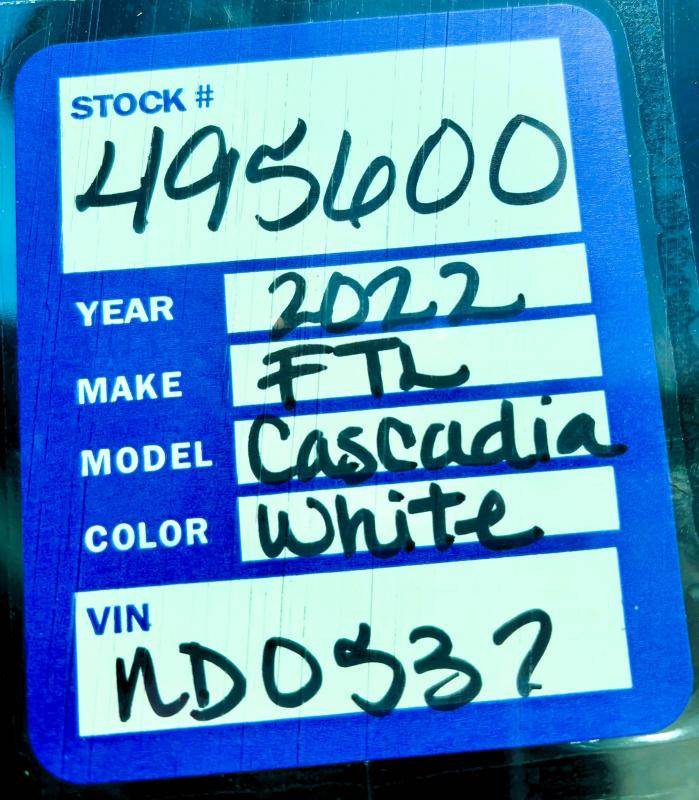 STOCK #
495600
YEAR 2022
MAKE FTL
MODEL Cascadia
COLOR White
VIN
ND0537